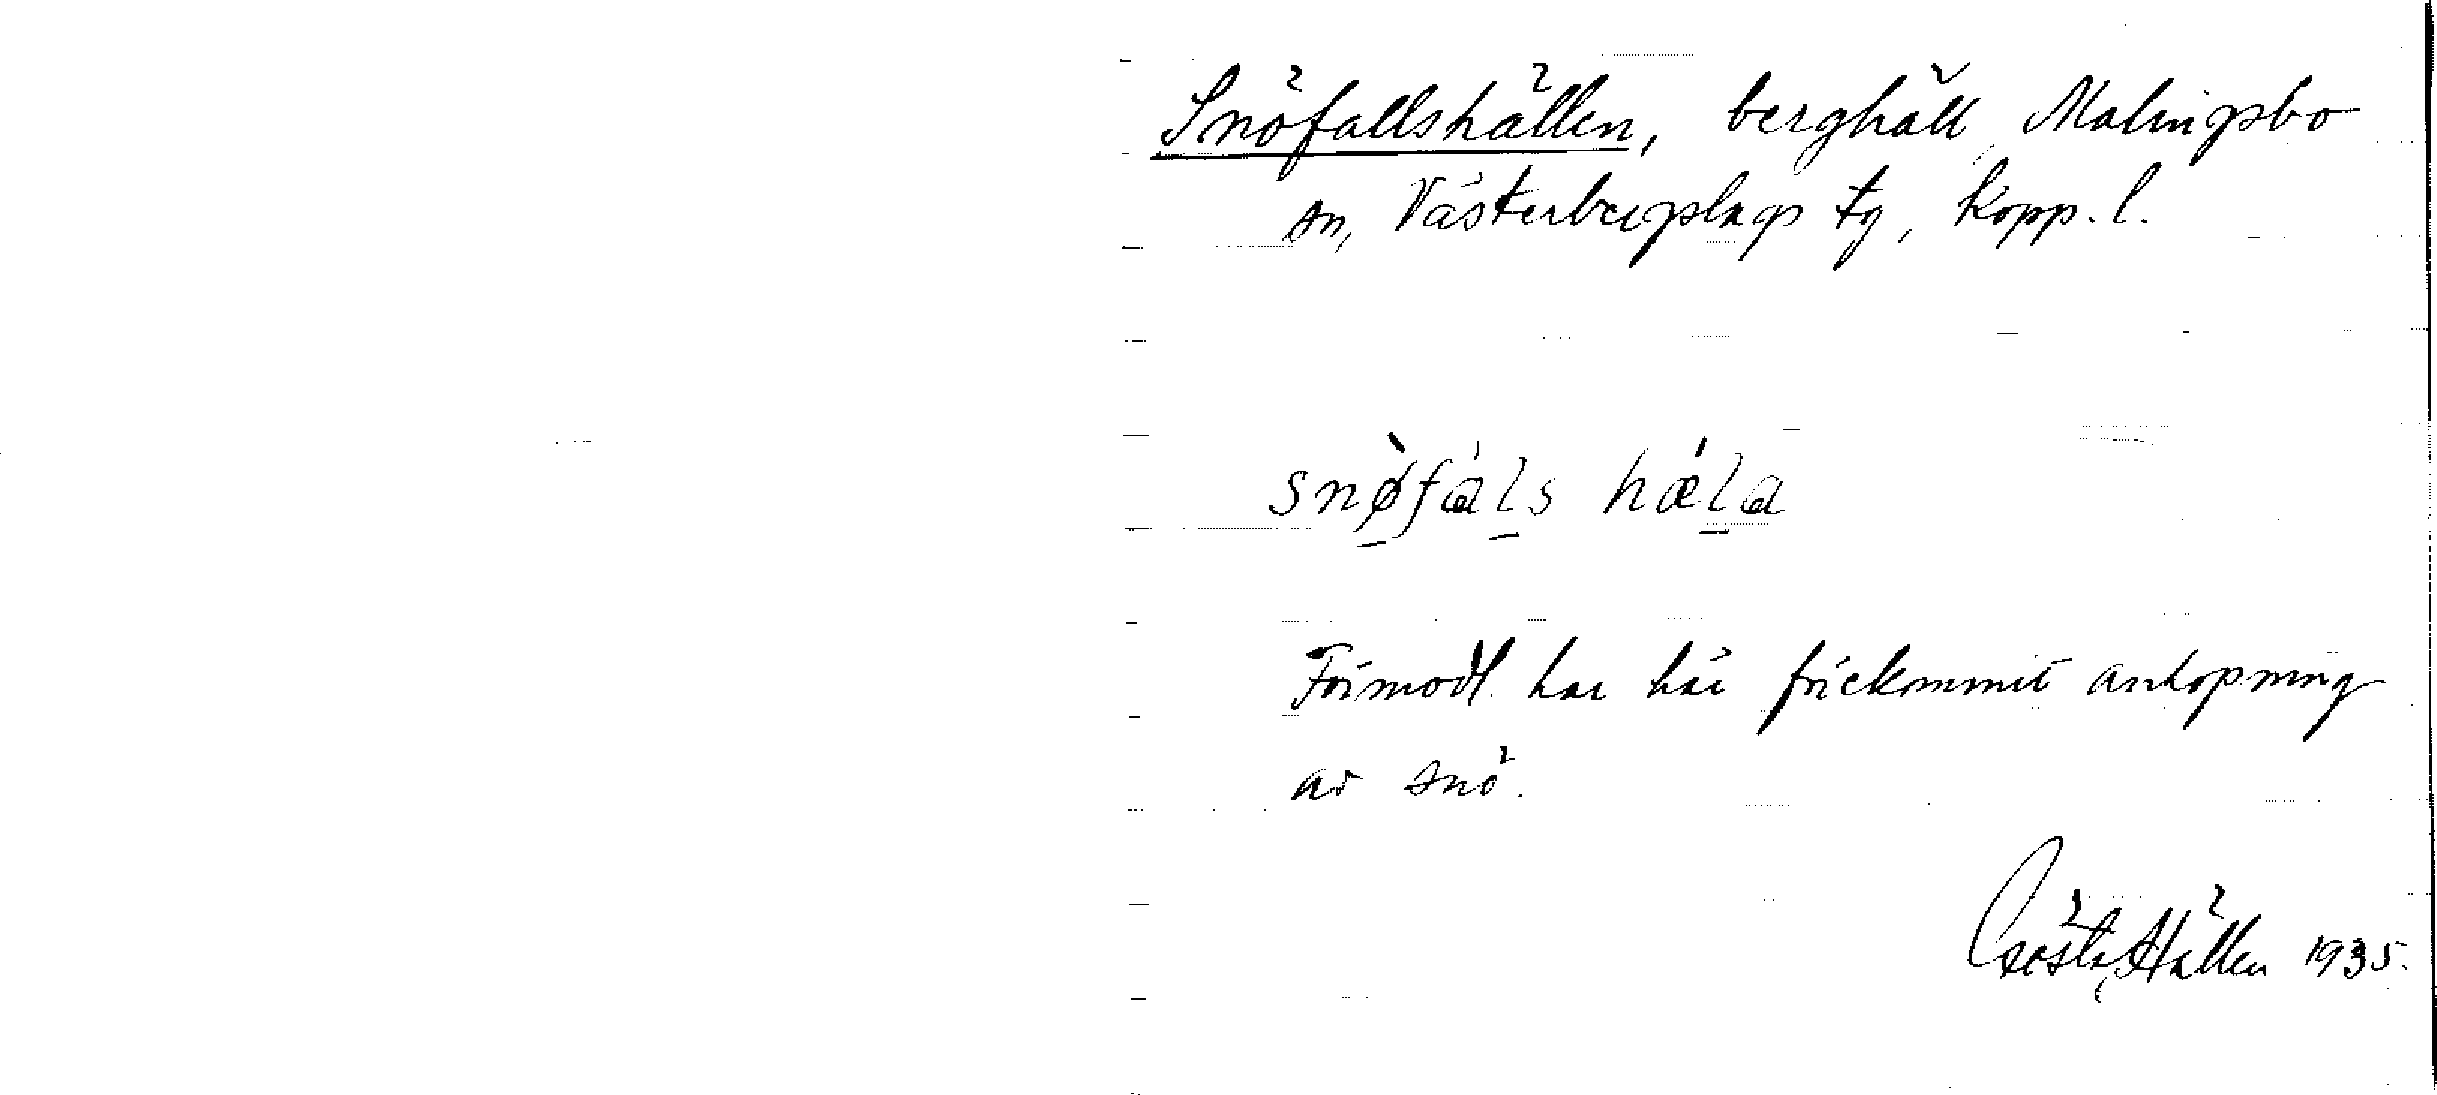 Snöfallshällen, berghäll, Malingsbo
sn, Västerbergslags tg, Kopp. l.
snø̀fá̀ls hǽla
Förmodl. har här förekommit anhopning
av snö.
Gösta Hällen 1935.